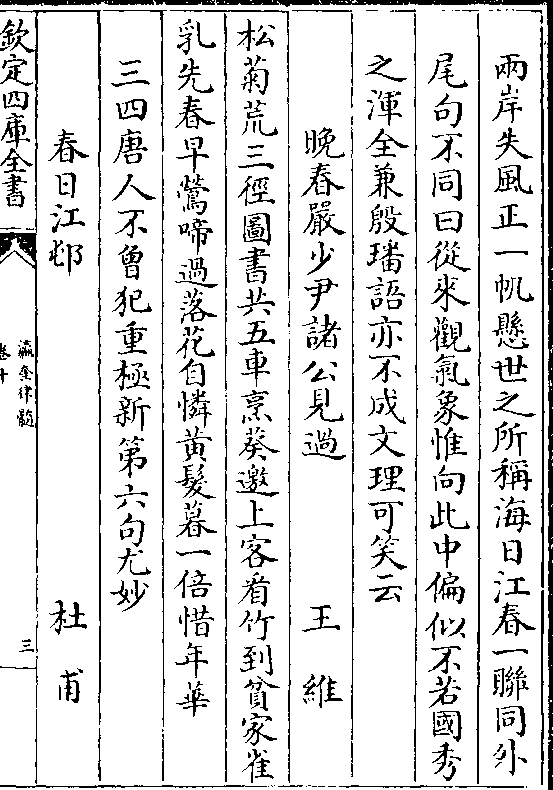 兩岸失風正一帆懸世之所稱海日江春一聯同外
尾句不同曰從來觀氣象惟向此中偏似不若國秀
之渾全兼殷璠語亦不成文理可笑云
晚春嚴少尹諸公見過 王維
松菊荒三徑圖書共五車烹葵邀上客看竹到貧家雀
乳先春早鶯啼過落花自憐黄髮暮一倍惜年華
三四唐人不曾犯重極新第六句尤妙
春日江邨 杜甫
欽定四庫全書
瀛奎律髓
卷十
三